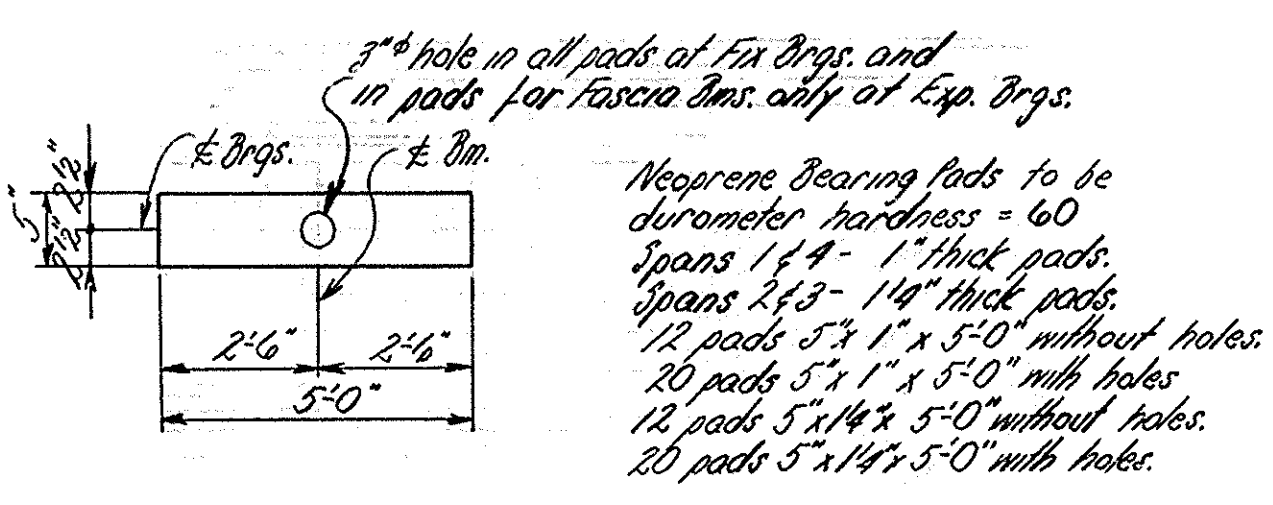 3"ø hole in all pads at Fix Brgs. and
in pads for Fascia Bms. only at Exp. Brgs.
℄ Brgs.
℄ Bm.
5"
2½"
2½"
2'-6"
2'-6"
5'-0"
Neoprene Bearing Pads to be
durometer hardness = 60
Spans 1 & 4 - 1" thick pads.
Spans 2 & 3 - 1¼" thick pads.
12 pads 5" x 1" x 5'-0" without holes.
20 pads 5" x 1" x 5'-0" with holes
12 pads 5" x 1¼" x 5'-0" without holes.
20 pads 5" x 1¼" x 5'-0" with holes.